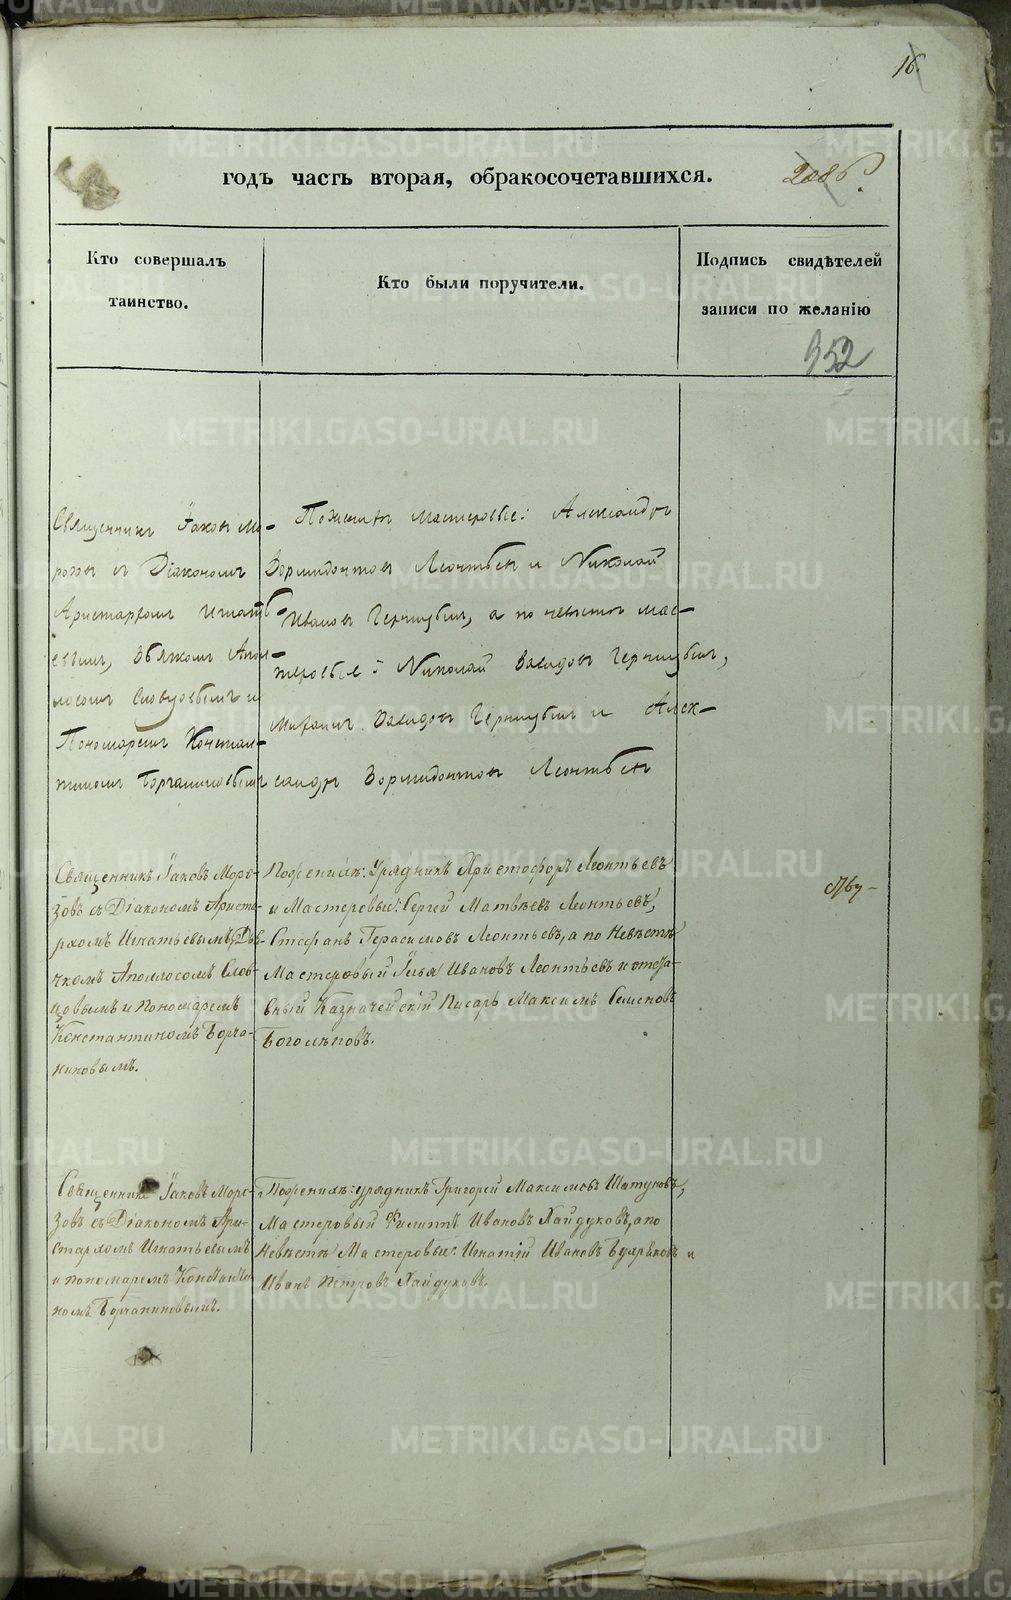 16.
годъ часть вторая, обракосочетавшихся.
Кто совершалъ
таинство.
Кто были поручители.
Подпись свидѣтелей
записи по желанію
952
Священникъ Іаковъ Мо-
розовъ съ Діакономъ
Аристархомъ Игнать-
евымъ, Апол-
лосомъ Словцовымъ и
Пономаремъ Констан-
тиномъ Борчаниновымъ
По женихѣ мастеровые: Александръ
Леонтьевъ и Николай
Ивановъ а по невѣстѣ мас-
теровые: Николай Давидовъ
Михаилъ Давидовъ и Алек-
сандръ Леонтьевъ
Священникъ Іаковъ Моро-
зовъ съ Діакономъ Ариста-
рхомъ Игнатьевымъ, Дья-
чкомъ Аполлосомъ Слов-
цовымъ и пономаремъ
Константиномъ Борча-
ниновымъ.
По женихѣ: Урядникъ Христофоръ Леонтьевъ
и Мастеровые: Сергей Матвѣевъ Леонтьевъ,
Стефанъ Герасимовъ Леонтьевъ, а по Невѣстѣ
Мастеровый Илья Ивановъ Леонтьевъ и отста-
вный Казначейскій Писарь Максимъ Семеновъ
Боголѣповъ.
Священникъ Іаковъ Моро-
зовъ съ Діакономъ Ари-
стархомъ Игнатьевымъ
и пономаремъ Константи-
номъ Борчаниновымъ.
По женихѣ: урядникъ Григорей Максимовъ Шатуновъ,
Мастеровый Филиппъ Ивановъ Хайдуковъ, а по
Невѣстѣ Мастеровые: Игнатій Ивановъ и
Иванъ Петровъ Хайдуковъ.
METRIKI.GASO-URAL.RU